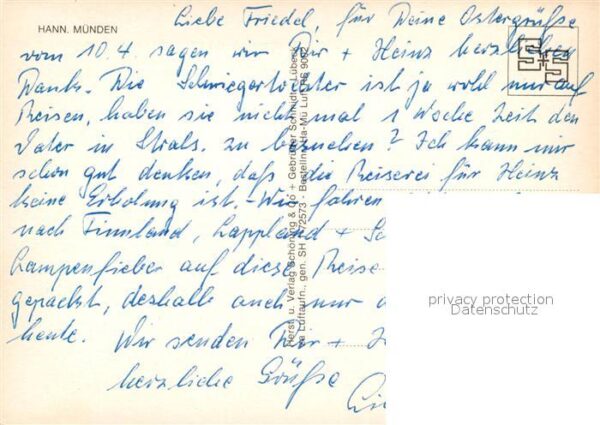 HANN. MÜNDEN
Liebe Friedel, für Deine Ostergrüße
vom 10.4. sagen wir Dir + Heinz herzlichen
Dank. Die Schwiegertochter ist ja wohl nur auf
Reisen, haben sie nicht mal 1 Woche Zeit den
Vater in Strals. zu besuchen? Ich kann mir
schon gut denken, daß die Reiserei für Heinz
keine Erholung ist. - Wir fahren
nach Finnland, Lappland +
Lampenfieber auf diese Reise
gepackt, deshalb auch nur
heute. Wir senden Dir +
herzliche Grüße
Herst. u. Verlag Schöning & Co + Gebrüder Schmidt, Lübeck
privacy protection
Datenschutz